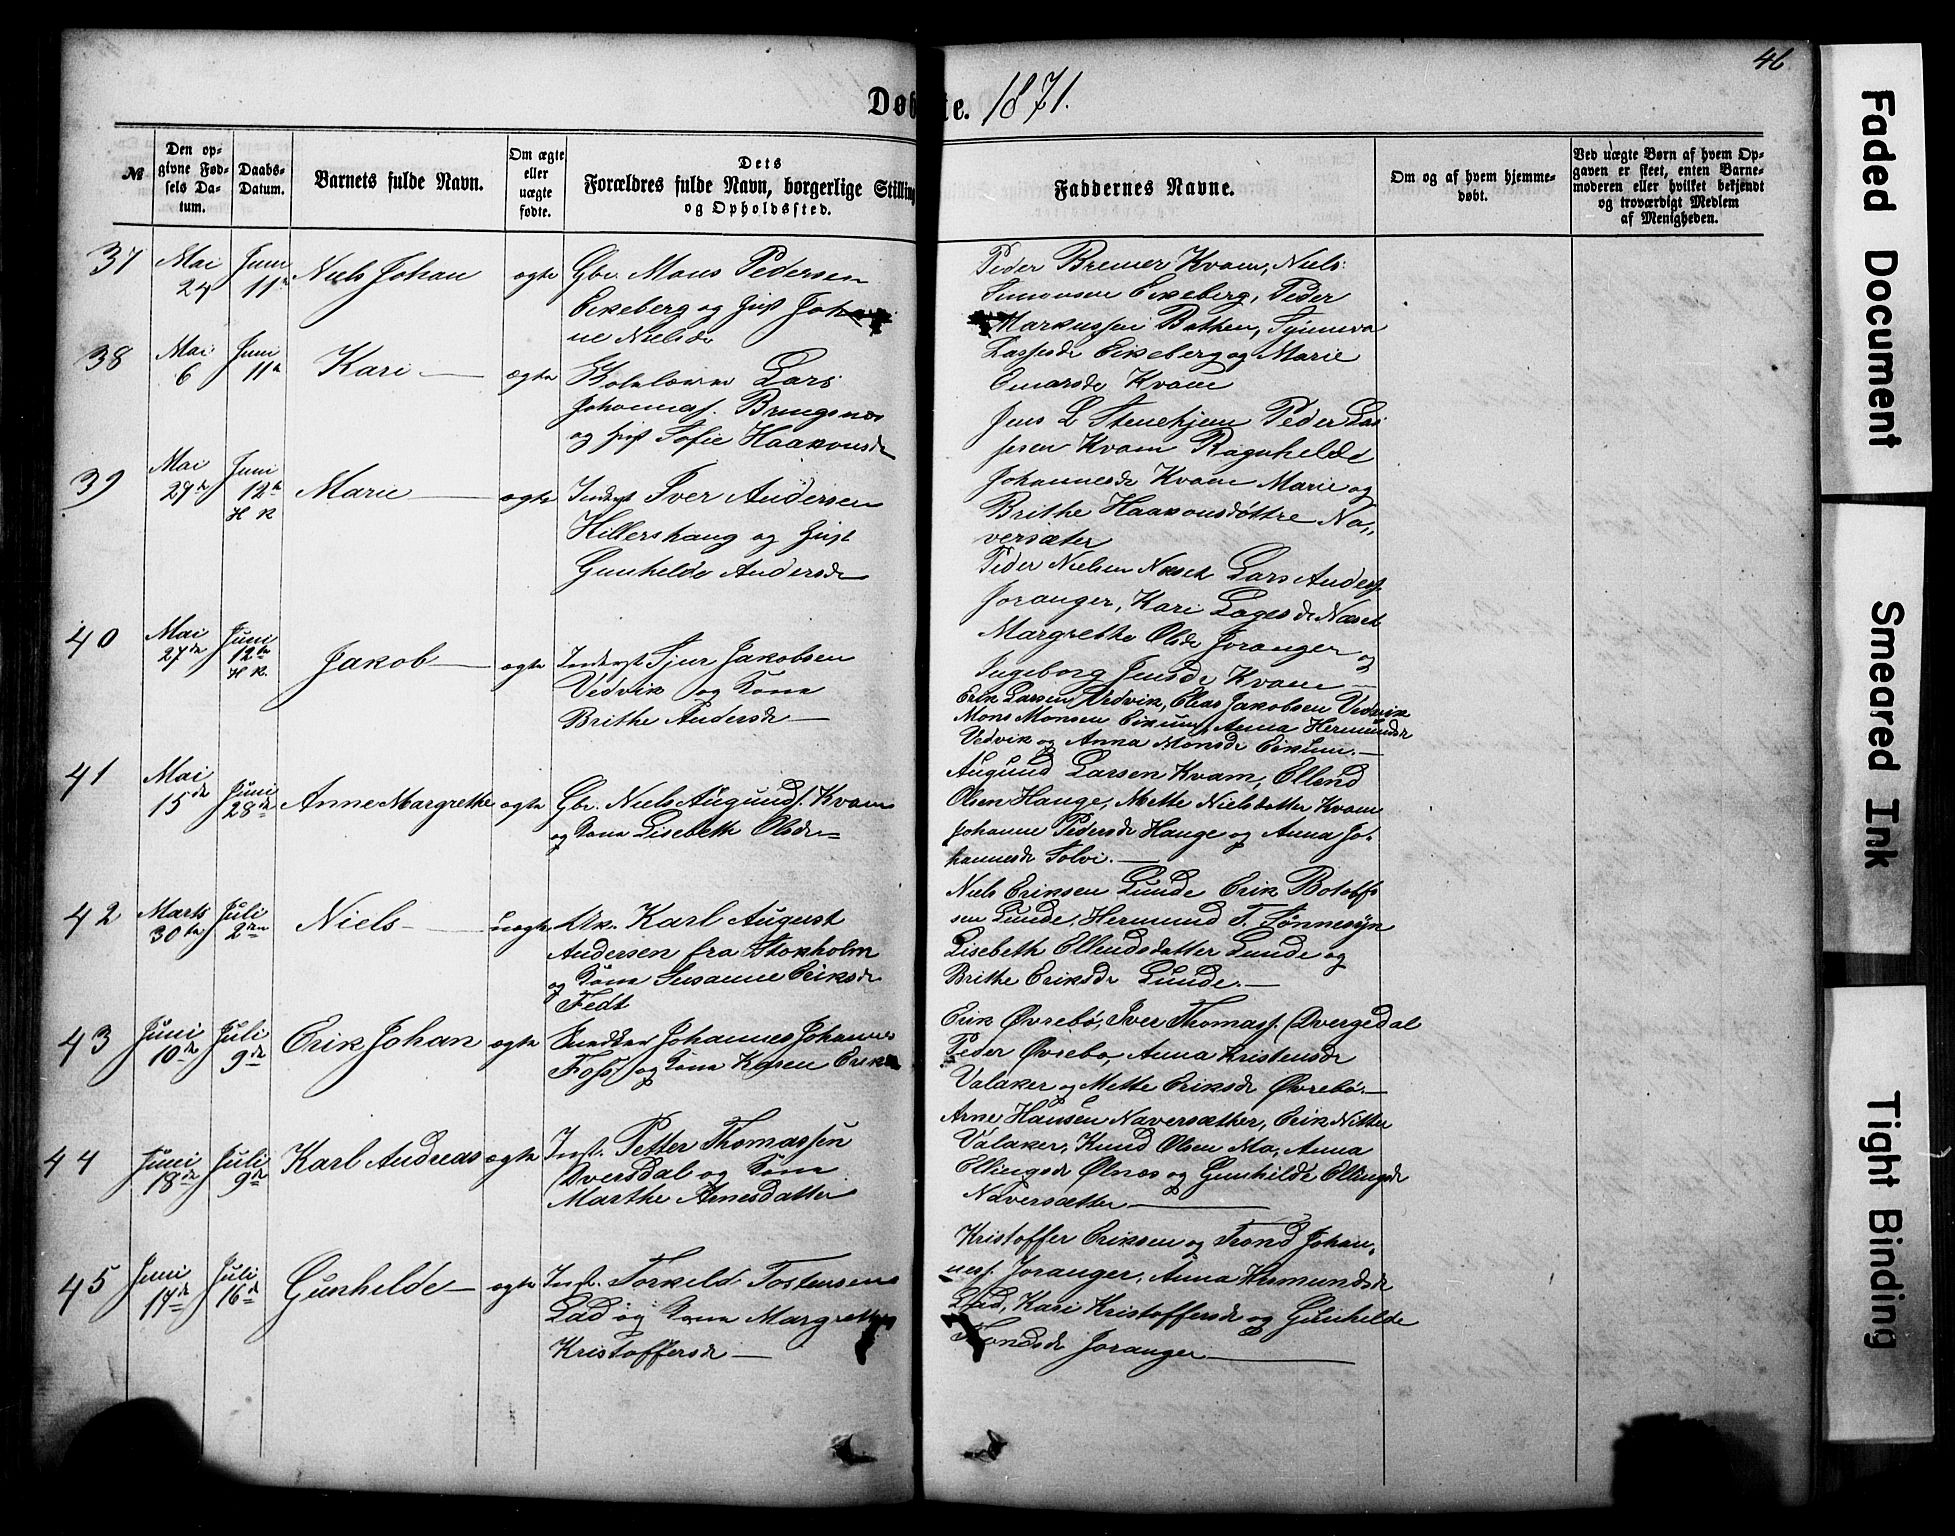 46
Døbte. 1871.
№
Den op-
givne Fød-
sels Da-
tum.
Daabs-
Datum.
Barnets fulde Navn.
Om ægte
eller
uægte
fødte.
Dets
Forældres fulde Navn, borgerlige Stilling
og Opholdssted.
Faddernes Navne.
Om og af hvem hjemme-
døbt.
Ved uægte Børn af hvem Op-
gaven er skeet, enten Barne-
moderen eller hvilket bekjendt
og troværdigt Medlem
af Menigheden.
37
Mai
24
Juni
11te
Niels Johan
ægte
Gbr. Mons Pedersen
Eikeberg og Johan
ne Nielsdr
Peder Bremer Kvam, Niels
Simonsen Eikeberg, Peder
Markussen Bothen, Synneva
Lassesdr Eikeberg og Marie
Einarsdr Kvam
38
Mai
6
Juni
11te
Kari —
ægte
Lars
Johannesf. Bringsnæs
og Sofie Haakonsdr
Jens L Stenehjem Peder Las
sesen Kvam Ragnhilde
Johannesdr Kvam Marie og
Brithe Haakonsdøttre Na,,
versæter
39
Mai
27de
Juni
12te
H K
Marie —
ægte
Inderst Iver Andersen
Hillershaug og
Gunhilde Andersdr
Peder Nielsen Næset Lars Andersf.
Joranger, Kari Lagesdr Næset
Margrethe Olsdr Joranger og
Ingeborg Jensdr Kvam
40
Mai
27de
Juni
12te
H K.
Jakob —
ægte
Inderst Sjur Jakobsen
Vedvik og Kona
Brithe Andersdr —
Erik Larsen Vedvik, Elias Jakobsen Vedvik
Mons Monsen Eikum, Anna Hermundsdr
Vedvik og Anna Monsdr Eikum. —
41
Mai
15de
Juni
28de
Anne Margrethe
ægte
Gbr. Niels Augunds. Kvam
og Kona Lisebeth Olsdr —
Augund Larsen Kvam, Ellend
Olsen Hauge, Mette Nielsdatter Kvam
Johanne Pedersdr Hauge og Anna Jo-
hannesdr Solvi. —
42
Marts
30te
Juli
2den
Niels —
uægte
Uk. Karl August
Andersen fra Stokholm
og Kona Susanne Eriksdr
Fedt
Niels Eriksen Lunde Erik Botolfs
sen Lunde, Hermund T. Tønnesyn
Lisebeth Ellendsdatter Lunde og
Brithe Eriksdr Lunde. —
43
Juni
10de
Juli
9de
Erik Johan
ægte
Johannes Johannes
Foss og Kona Karen Eriksdr
Erik Øvrebø, Iver Thomass. Dvergedal
Peder Øvrebø, Anna Kristensdr
Valaker og Mette Eriksdr Øvrebø. —
44
Juni
18de
Juli
9de
Karl Andreas
ægte
Inst. Petter Thomassen
Dversdal og Kona
Marthe Arnesdatter
Arne Hansen Naversæther, Erik Nitter
Valaker, Knud Olsen Mo, Anna
Ellingsdr Ølnes og Gunhilde Ellingsdr
Naversætter —
45
Juni
17de
Juli
16de
Gunhilde —
ægte
Inst. Torkeld Tostensen
Lad og Kona Margrethe
Kristoffersdr —
Kristoffer Eriksen og Trond Johan,
nesf. Joranger, Anna Hermundsdr
Lad, Kari Kristoffersdr og Gunhilde
Trondsdr Joranger —
Faded Document
Smeared Ink
Tight Binding